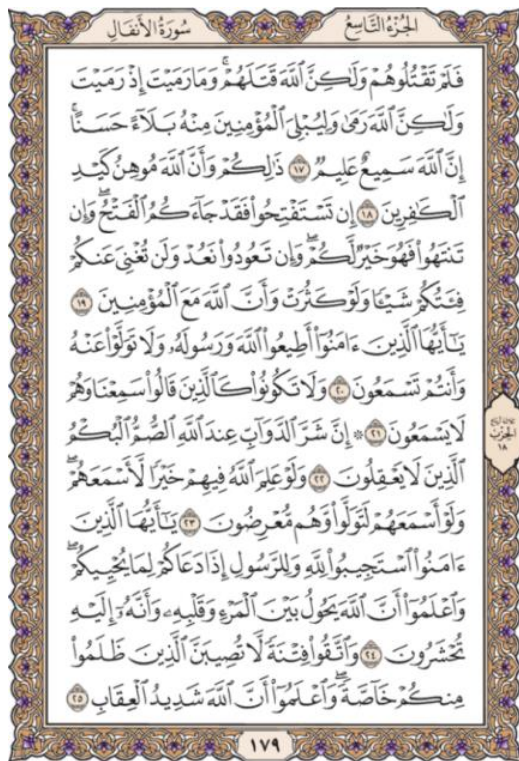 الجُزْءُ التَّاسِعُ
سُورَةُ الأَنفَالِ
فَلَمْ تَقْتُلُوهُمْ وَلَٰكِنَّ ٱللَّهَ قَتَلَهُمْۚ وَمَا رَمَيْتَ إِذْ رَمَيْتَ
وَلَٰكِنَّ ٱللَّهَ رَمَىٰ وَلِيُبْلِيَ ٱلْمُؤْمِنِينَ مِنْهُ بَلَآءً حَسَنًاۚ
إِنَّ ٱللَّهَ سَمِيعٌ عَلِيمٌ ١٧ ذَٰلِكُمْ وَأَنَّ ٱللَّهَ مُوهِنُ كَيْدِ
ٱلْكَٰفِرِينَ ١٨ إِن تَسْتَفْتِحُوا۟ فَقَدْ جَآءَكُمُ ٱلْفَتْحُۖ وَإِن
تَنتَهُوا۟ فَهُوَ خَيْرٌ لَّكُمْۖ وَإِن تَعُودُوا۟ نَعُدْ وَلَن تُغْنِيَ عَنكُمْ
فِئَتُكُمْ شَيْـًٔا وَلَوْ كَثُرَتْ وَأَنَّ ٱللَّهَ مَعَ ٱلْمُؤْمِنِينَ ١٩
يَٰٓأَيُّهَا ٱلَّذِينَ ءَامَنُوٓا۟ أَطِيعُوا۟ ٱللَّهَ وَرَسُولَهُۥ وَلَا تَوَلَّوْا۟ عَنْهُ
وَأَنتُمْ تَسْمَعُونَ ٢٠ وَلَا تَكُونُوا۟ كَٱلَّذِينَ قَالُوا۟ سَمِعْنَا وَهُمْ
لَا يَسْمَعُونَ ٢١ ۞ إِنَّ شَرَّ ٱلدَّوَآبِّ عِندَ ٱللَّهِ ٱلصُّمُّ ٱلْبُكْمُ
ٱلَّذِينَ لَا يَعْقِلُونَ ٢٢ وَلَوْ عَلِمَ ٱللَّهُ فِيهِمْ خَيْرًا لَّأَسْمَعَهُمْۖ
وَلَوْ أَسْمَعَهُمْ لَتَوَلَّوا۟ وَّهُم مُّعْرِضُونَ ٢٣ يَٰٓأَيُّهَا ٱلَّذِينَ
ءَامَنُوا۟ ٱسْتَجِيبُوا۟ لِلَّهِ وَلِلرَّسُولِ إِذَا دَعَاكُمْ لِمَا يُحْيِيكُمْۖ
وَٱعْلَمُوٓا۟ أَنَّ ٱللَّهَ يَحُولُ بَيْنَ ٱلْمَرْءِ وَقَلْبِهِۦ وَأَنَّهُۥٓ إِلَيْهِ
تُحْشَرُونَ ٢٤ وَٱتَّقُوا۟ فِتْنَةً لَّا تُصِيبَنَّ ٱلَّذِينَ ظَلَمُوا۟
مِنكُمْ خَآصَّةًۖ وَٱعْلَمُوٓا۟ أَنَّ ٱللَّهَ شَدِيدُ ٱلْعِقَابِ ٢٥
الحِزْب
١٨
١٧٩